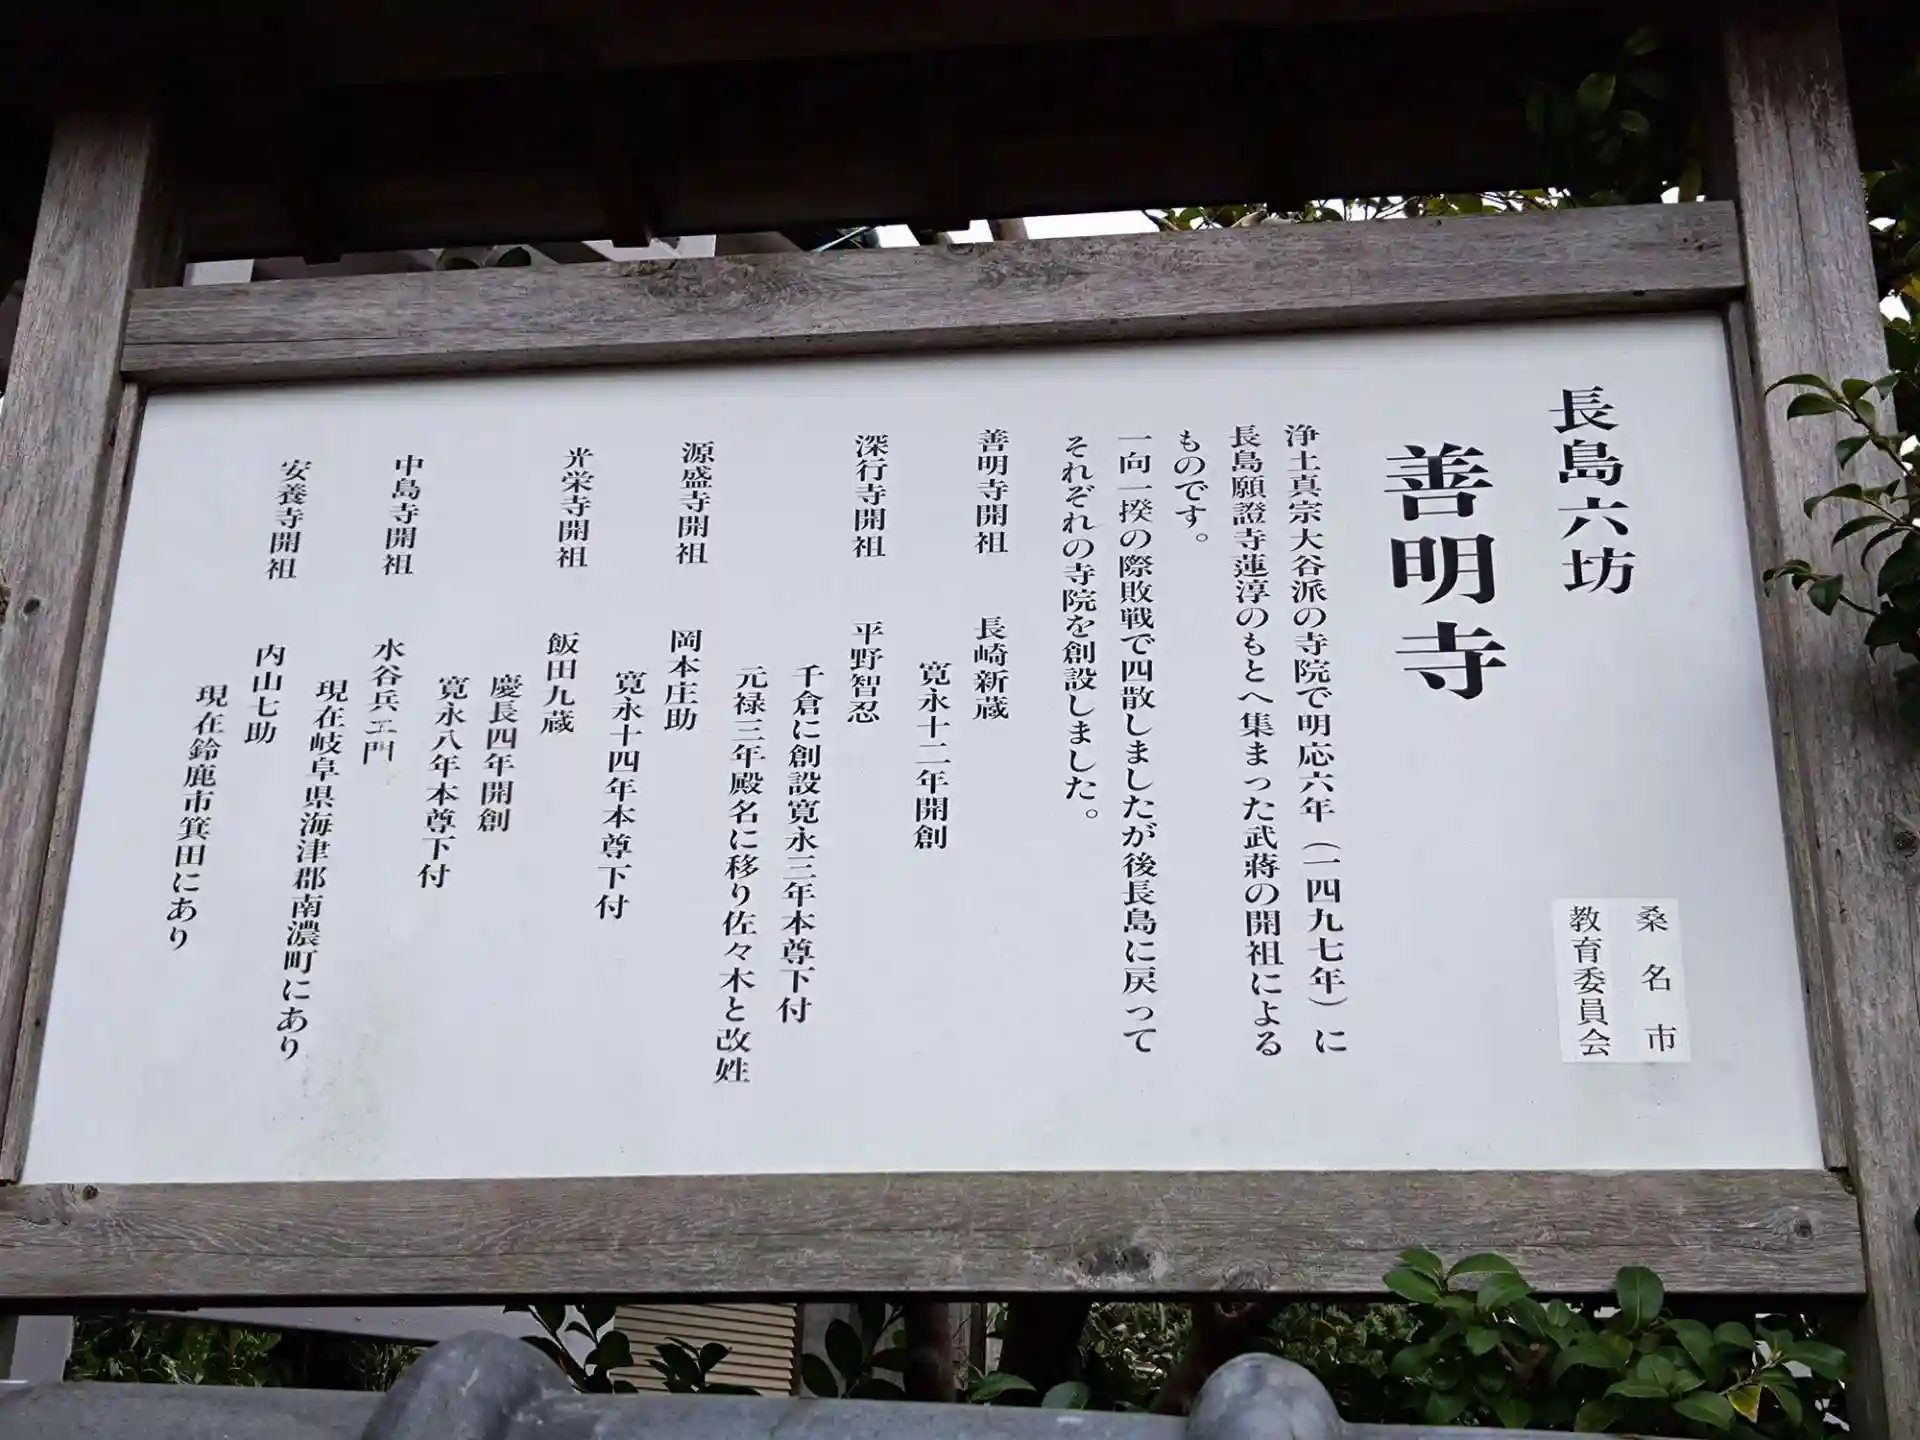 長島六坊
善明寺
桑名市
教育委員会
浄土真宗大谷派の寺院で明応六年（一四九七年）に
長島願證寺蓮淳のもとへ集まった武蒋の開祖による
ものです。
一向一揆の際敗戦で四散しましたが後長島に戻って
それぞれの寺院を創設しました。
善明寺開祖　長崎新蔵
寛永十二年開創
深行寺開祖　平野智忍
千倉に創設寛永三年本尊下付
元禄三年殿名に移り佐々木と改姓
源盛寺開祖　岡本庄助
寛永十四年本尊下付
光栄寺開祖　飯田九蔵
慶長四年開創
寛永八年本尊下付
中島寺開祖　水谷兵エ門
現在岐阜県海津郡南濃町にあり
安養寺開祖　内山七助
現在鈴鹿市箕田にあり